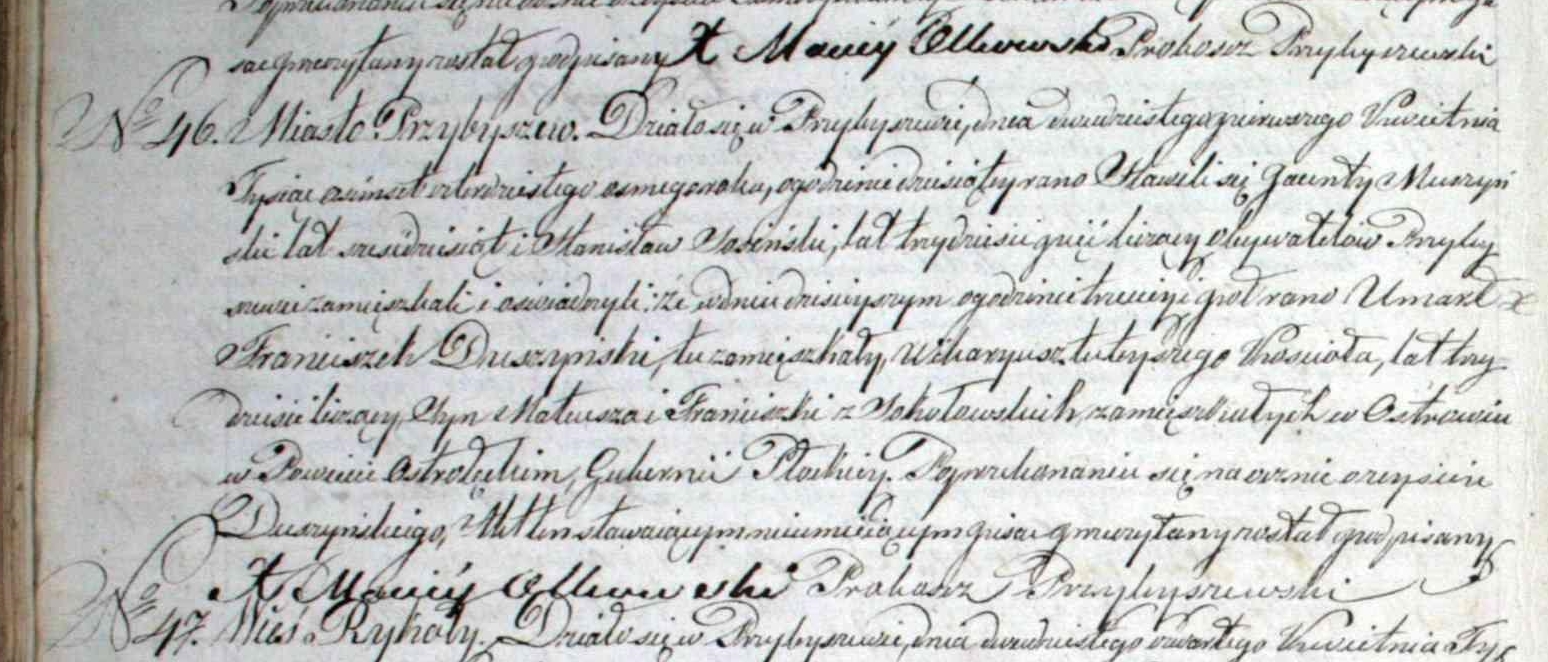 sać przeczytany został podpisany X Maciéy Proboszcz Przybyszewski
No 46. Miasto Przybyszew. Działo się w Przybyszewie, dnia dwudziestego pierwszego Kwietnia
Tysiąc osimset czterdziestego osmego roku, o godzinie dziesiątey rano Stawili się Jacenty Muszyń
ski lat sześdziesiąt i Stanisław Jasiński, lat trzydzieści pięć liczący Obywatelów Przyby
szewie zamieszkali i oświadczyli: że w dniu dzisieyszym o godzinie trzeciey i pół rano Umarł
Franciszek Duszyński, tu zamięszkały, Wikaryusz tuteyszego Kościoła, lat trzy
dzieście liczący, Syn Mateusza i Franciszki z Sokołowskich, zamięszkałych w Ostrowiu
w Powiecie Ostrołęckim, Gubernii Płockiey. Po przekonaniu się na ocznie o zeyściu
Duszyńskiego, Akt ten stawaiącym nieumieiącym pisać przeczytany został podpisany
X Maciéy Proboszcz Przybyszewski
No 47. Wieś Rykały. Działo się w Przybyszewie, dnia dwudziestego czwartego Kwietnia Tyś